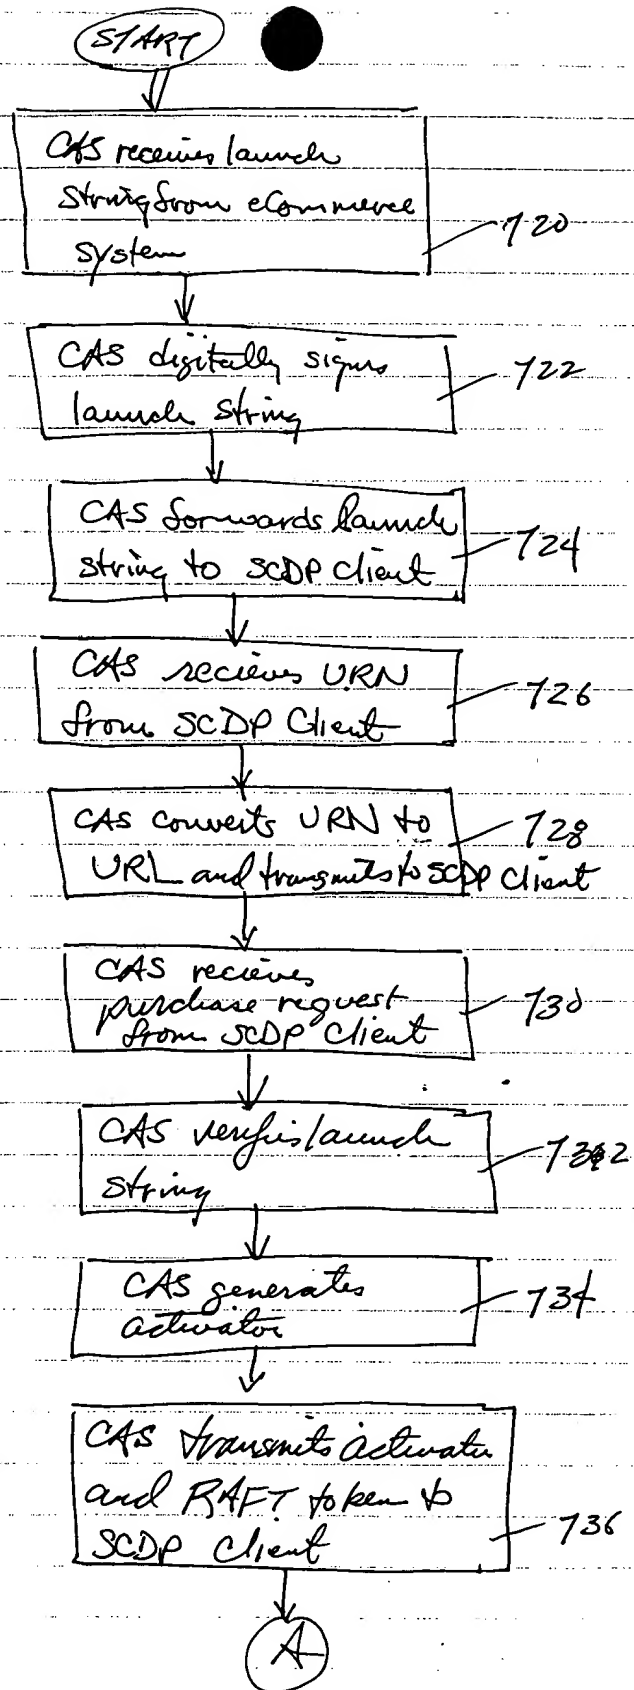 START
CAS receives launch
string from eCommerce
system
720
CAS digitally signs
launch string
722
CAS forwards launch
string to SCDP Client
724
CAS recieves URN
from SCDP Client
726
CAS converts URN to
URL and transmits to SCDP Client
728
CAS recieves
purchase request
from SCDP Client
730
CAS verifies launch
string
732
CAS generates
activator
734
CAS transmits activator
and RAFT token to
SCDP Client
736
A